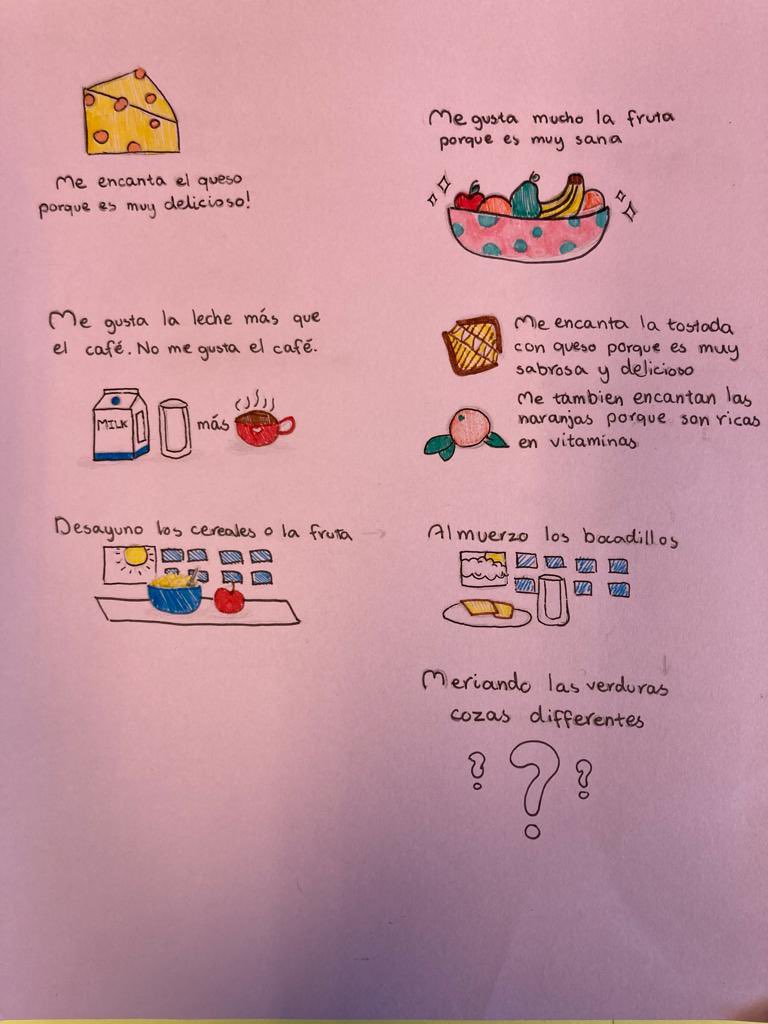 Me encanta el queso
porque es muy delicioso!
Me gusta mucho la fruta
porque es muy sana
Me gusta la leche más que
el café. No me gusta el café.
MILK
más
Me encanta la tostada
con queso porque es muy
sabrosa y delicioso
Me tambien encantan las
naranjas porque son ricas
en vitaminas
Desayuno los cereales o la fruta
Almuerzo los bocadillos
Meriando las verduras
cozas differentes
? ? ?